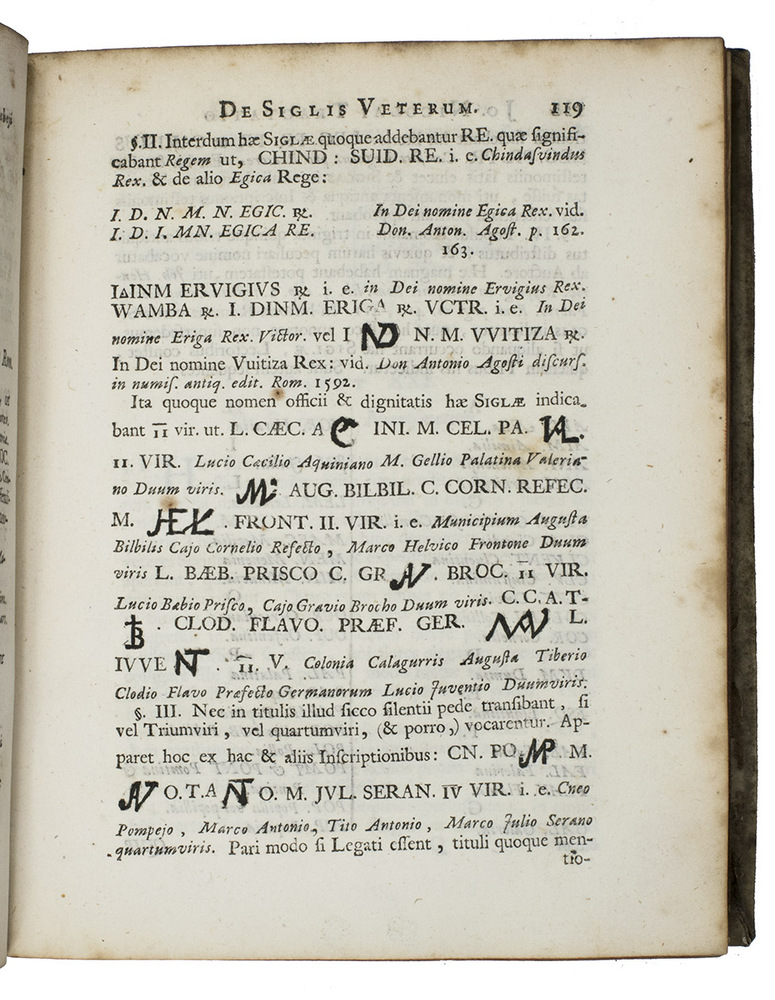 DE SIGLIS VETERUM. 119
§.II. Interdum hæ SIGLÆ quoque addebantur RE. quæ signifi-
cabant Regem ut, CHIND : SUID. RE. i. e. Chindasvindus
Rex. & de alio Egica Rege:
I. D. N. M. N. EGIC. ℞. In Dei nomine Egica Rex. vid.
I. D. I. MN. EGICA RE. Don. Anton. Agost. p. 162.
163.
I∆INM ERVIGIVS ℞ i. e. in Dei nomine Ervigius Rex.
WAMBA ℞. I. DINM. ERIGA ℞. VCTR. i. e. In Dei
nomine Eriga Rex. Victor. vel I ND N. M. VVITIZA ℞.
In Dei nomine Vuitiza Rex: vid. Don Antonio Agosti discurs.
in numis. antiq. edit. Rom. 1592.
Ita quoque nomen officii & dignitatis hæ SIGLÆ indica-
bant II vir. ut. L. CÆC. A INI. M. CEL. PA.
II. VIR. Lucio Cæcilio Aquiniano M. Gellio Palatina Valeria-
no Duum viris. AUG. BILBIL. C. CORN. REFEC.
M. . FRONT. II. VIR. i. e. Municipium Augusta
Bilbilis Cajo Cornelio Refecto, Marco Helvico Frontone Duum
viris L. BÆB. PRISCO C. GR . BROC. II VIR.
Lucio Bæbio Prisco, Cajo Gravio Brocho Duum viris. C. C. A. T-
. CLOD. FLAVO. PRÆF. GER. L.
IVVE . II. V. Colonia Calagurris Augusta Tiberio
Clodio Flavo Præfecto Germanorum Lucio Juventio Duumviris.
§. III. Nec in titulis illud sicco silentii pede transibant, si
vel Triumviri, vel quartumviri, (& porro,) vocarentur. Ap-
paret hoc ex hac & aliis Inscriptionibus: CN. PO M.
O. T. A O. M. JVL. SERAN. IV VIR. i. e. Cneo
Pompejo, Marco Antonio, Tito Antonio, Marco Julio Serano
quartumviris. Pari modo si Legati essent, tituli quoque men-
tio-